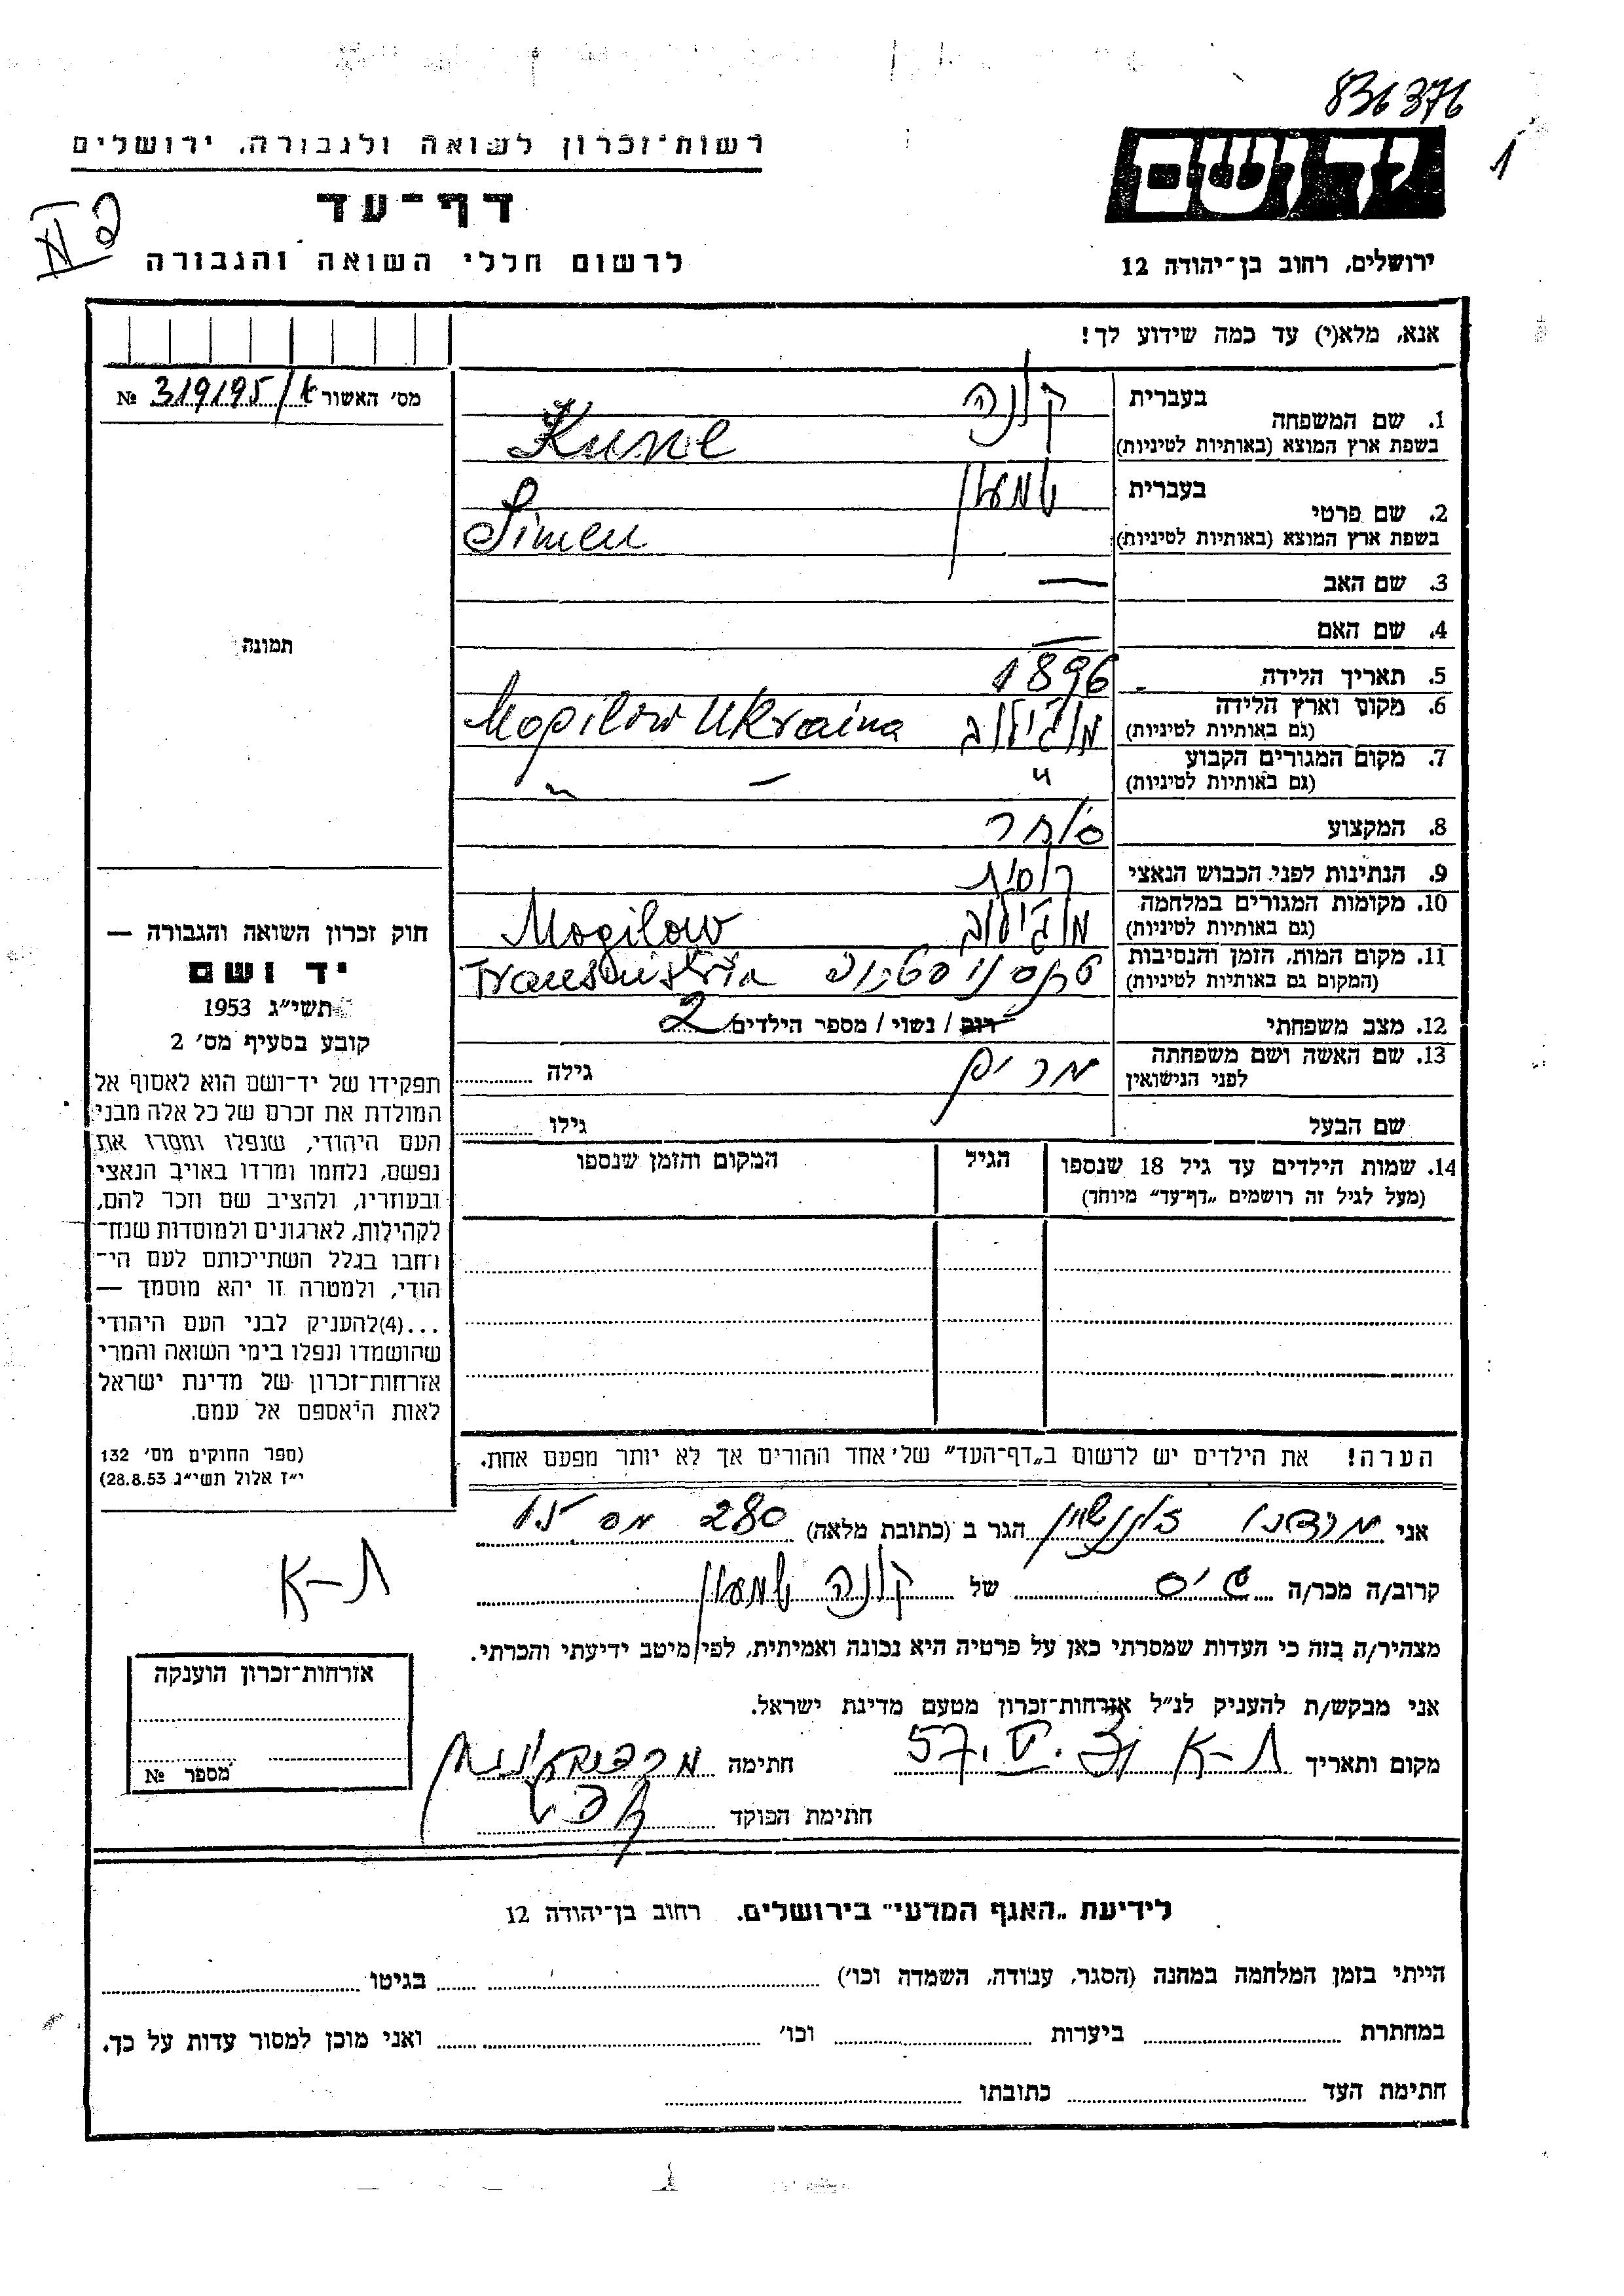 836376
1
יד ושם
רשות־זכרון לשואה ולגבורה, ירושלים
דף־עד
לרשום חללי השואה והגבורה
ירושלים, רחוב בן־יהודה 12
אנא, מלא(י) עד כמה שידוע לך!
מס׳ האשור 319195/א №
תמונה
1. שם המשפחה
בעברית קונה
בשפת ארץ המוצא (באותיות לטיניות) Kune
2. שם פרטי
בעברית שמעון
בשפת ארץ המוצא (באותיות לטיניות) Simen
3. שם האב —
4. שם האם —
5. תאריך הלידה 1896
6. מקום וארץ הלידה
(גם באותיות לטיניות) מוגילוב Mogilow Ukraina
7. מקום המגורים הקבוע
(גם באותיות לטיניות) " — "
8. המקצוע סוחר
9. הנתינות לפני הכבוש הנאצי רוסית
10. מקומות המגורים במלחמה
(גם באותיות לטיניות) מוגילוב Mogilow
11. מקום המות, הזמן והנסיבות
(המקום גם באותיות לטיניות) Transnistria
12. מצב משפחתי רווק / נשוי / מספר הילדים 2
13. שם האשה ושם משפחתה
לפני הנישואין מרים גילה
שם הבעל גילו
14. שמות הילדים עד גיל 18 שנספו הגיל המקום והזמן שנספו
(מעל לגיל זה רושמים „דף־עד״ מיוחד)
הערה! את הילדים יש לרשום ב„דף־העד״ של אחד ההורים אך לא יותר מפעם אחת.
חוק זכרון השואה והגבורה —
יד ושם
תשי״ג 1953
קובע בסעיף מס׳ 2
תפקידו של יד־ושם הוא לאסוף אל
המולדת את זכרם של כל אלה מבני
העם היהודי, שנפלו ומסרו את
נפשם, נלחמו ומרדו באויב הנאצי
ובעוזריו, ולהציב שם וזכר להם,
לקהילות, לארגונים ולמוסדות שנח־
רחבו בגלל השתייכותם לעם הי־
הודי, ולמטרה זו יהא מוסמך —
...(4)להעניק לבני העם היהודי
שהושמדו ונפלו בימי השואה והמרי
אזרחות־זכרון של מדינת ישראל
לאות היאספם אל עמם.
(ספר החוקים מס׳ 132
י״ז אלול תשי״ג 28.8.53)
אני הגר ב (כתובת מלאה) 280
קרוב/ה מכר/ה גיס של קונה שמעון
מצהיר/ה בזה כי העדות שמסרתי כאן על פרטיה היא נכונה ואמיתית, לפי מיטב ידיעתי והכרתי.
אני מבקש/ת להעניק לנ״ל אזרחות־זכרון מטעם מדינת ישראל.
מקום ותאריך ת-א 57. חתימה
חתימת הפוקד
ת-א
אזרחות־זכרון הוענקה
מספר №
לידיעת „האגף המדעי״ בירושלים. רחוב בן־יהודה 12
הייתי בזמן המלחמה במחנה (הסגר, עבודה, השמדה וכו׳) בגיטו
במחתרת ביערות וכו׳ ואני מוכן למסור עדות על כך.
חתימת העד כתובתו